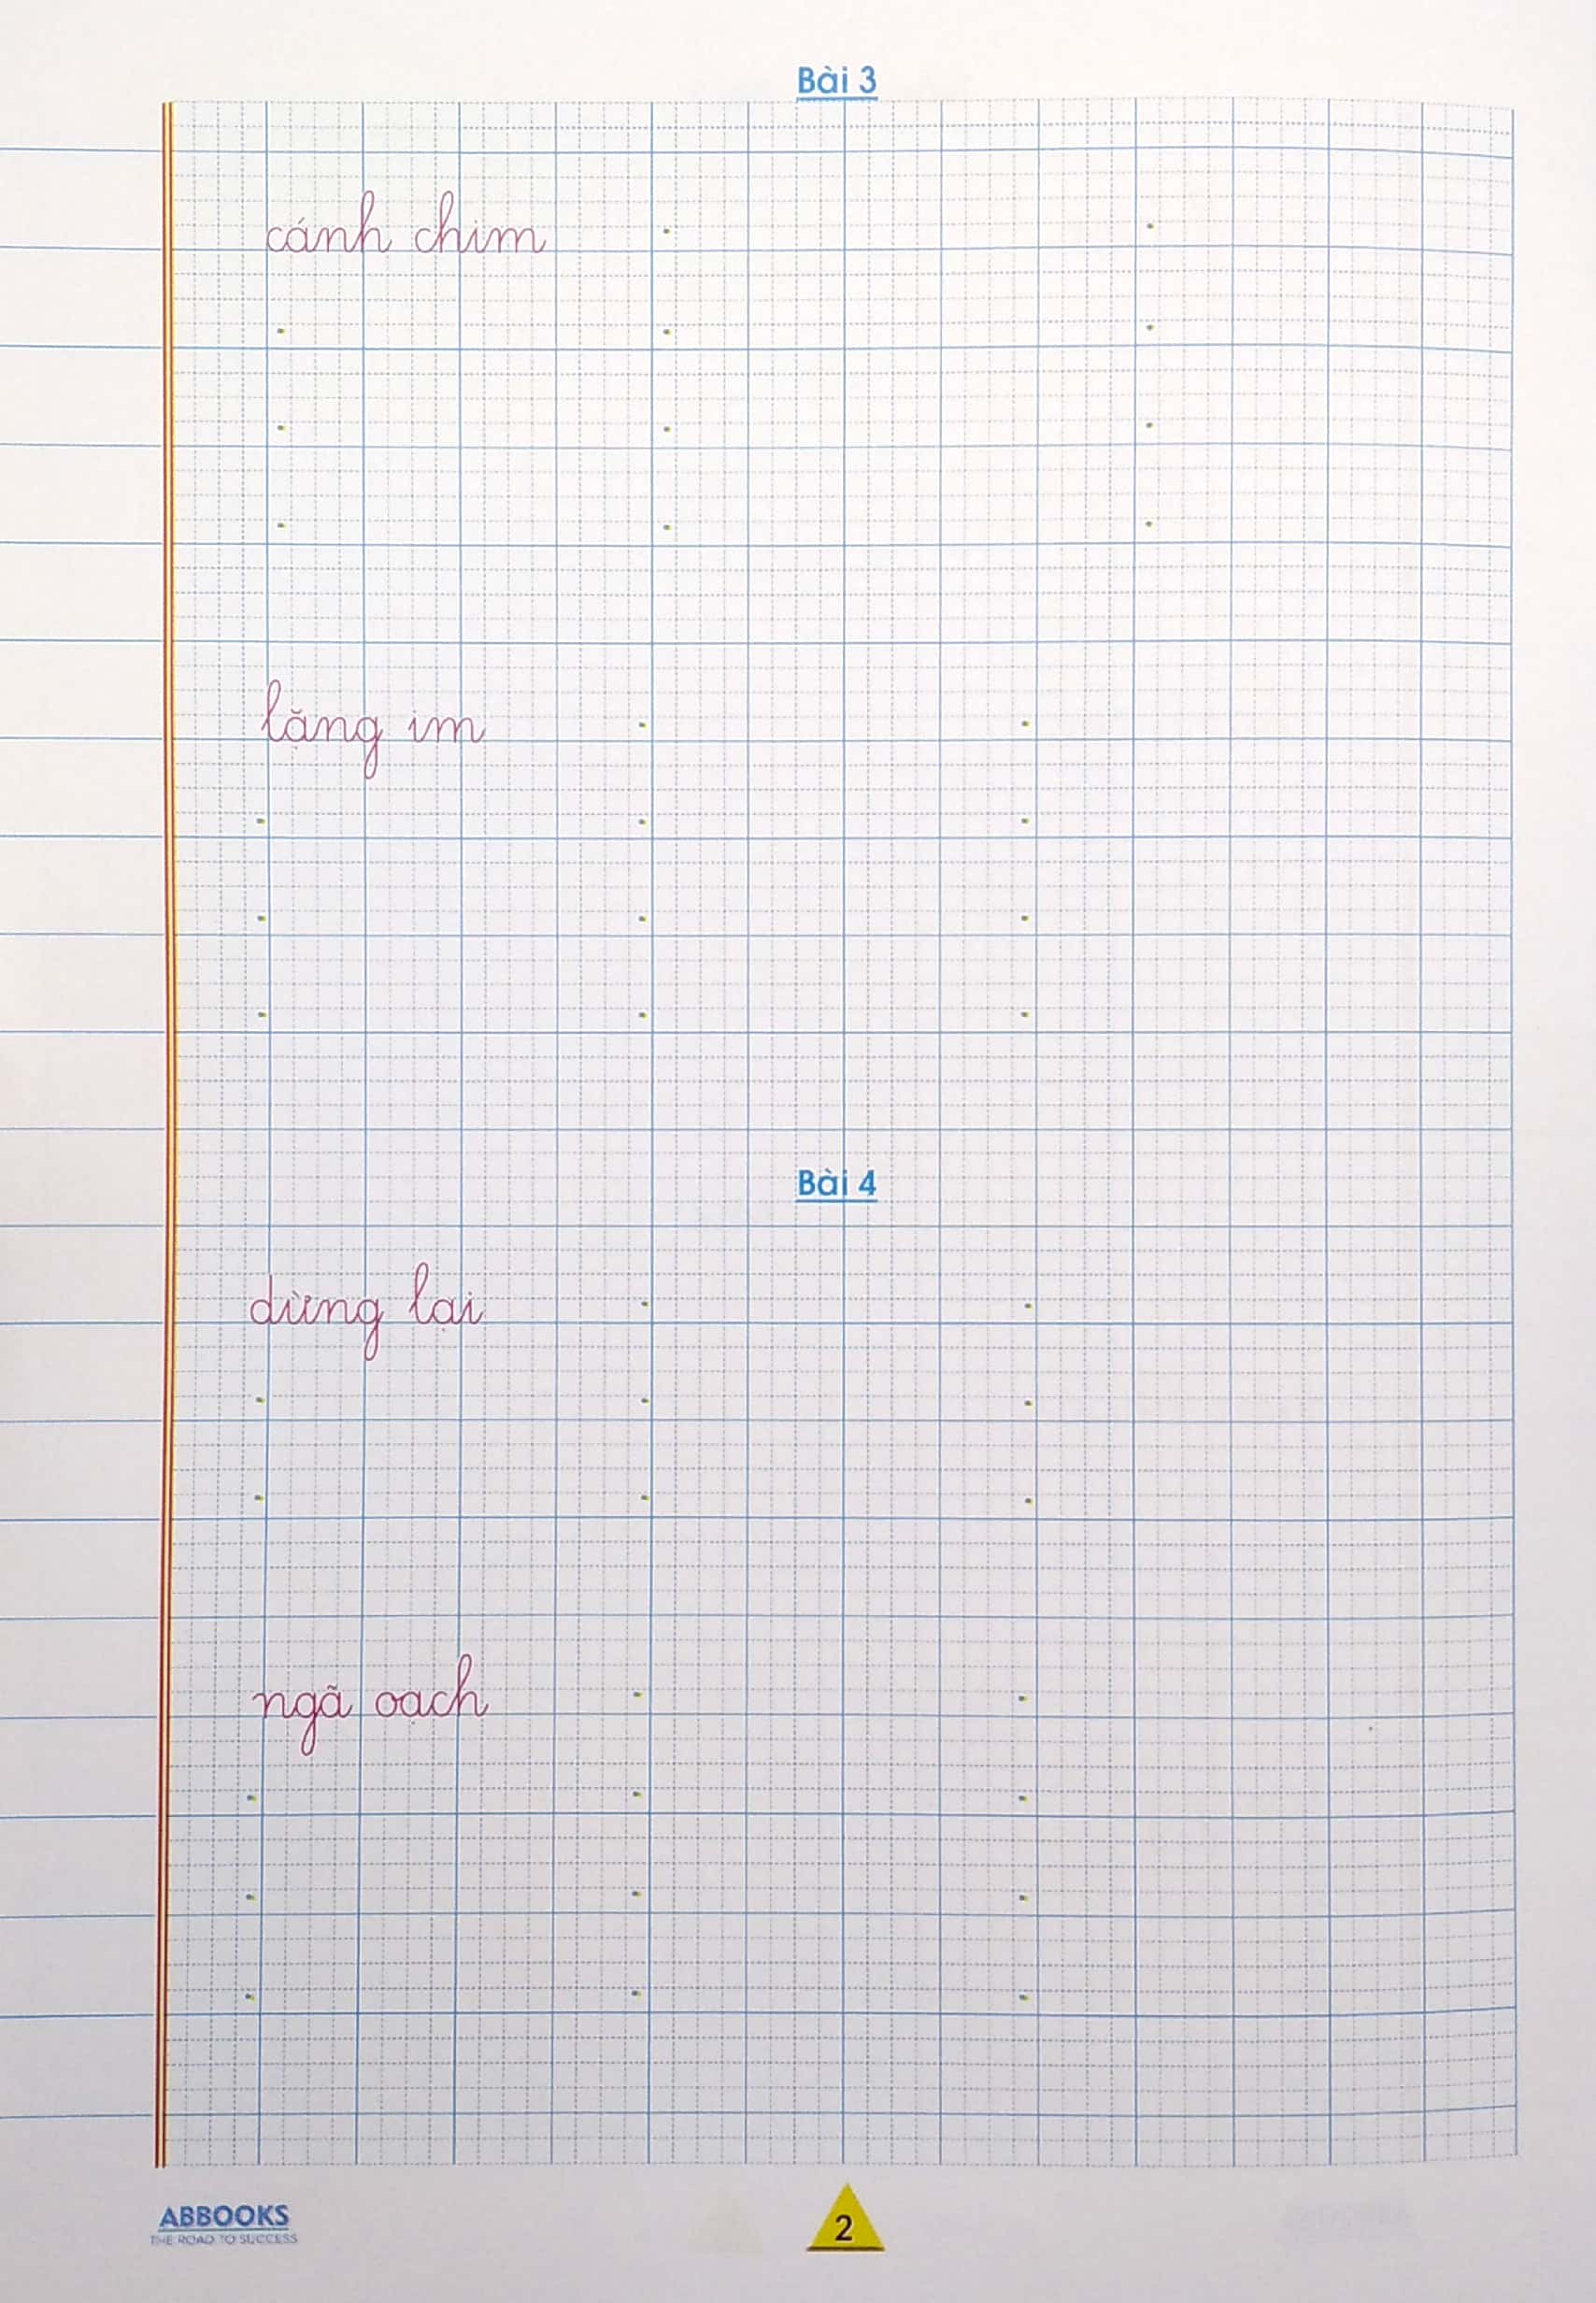 Bài 3
cánh chim
lặng im
Bài 4
dừng lại
ngã oạch
ABBOOKS
THE ROAD TO SUCCESS
2